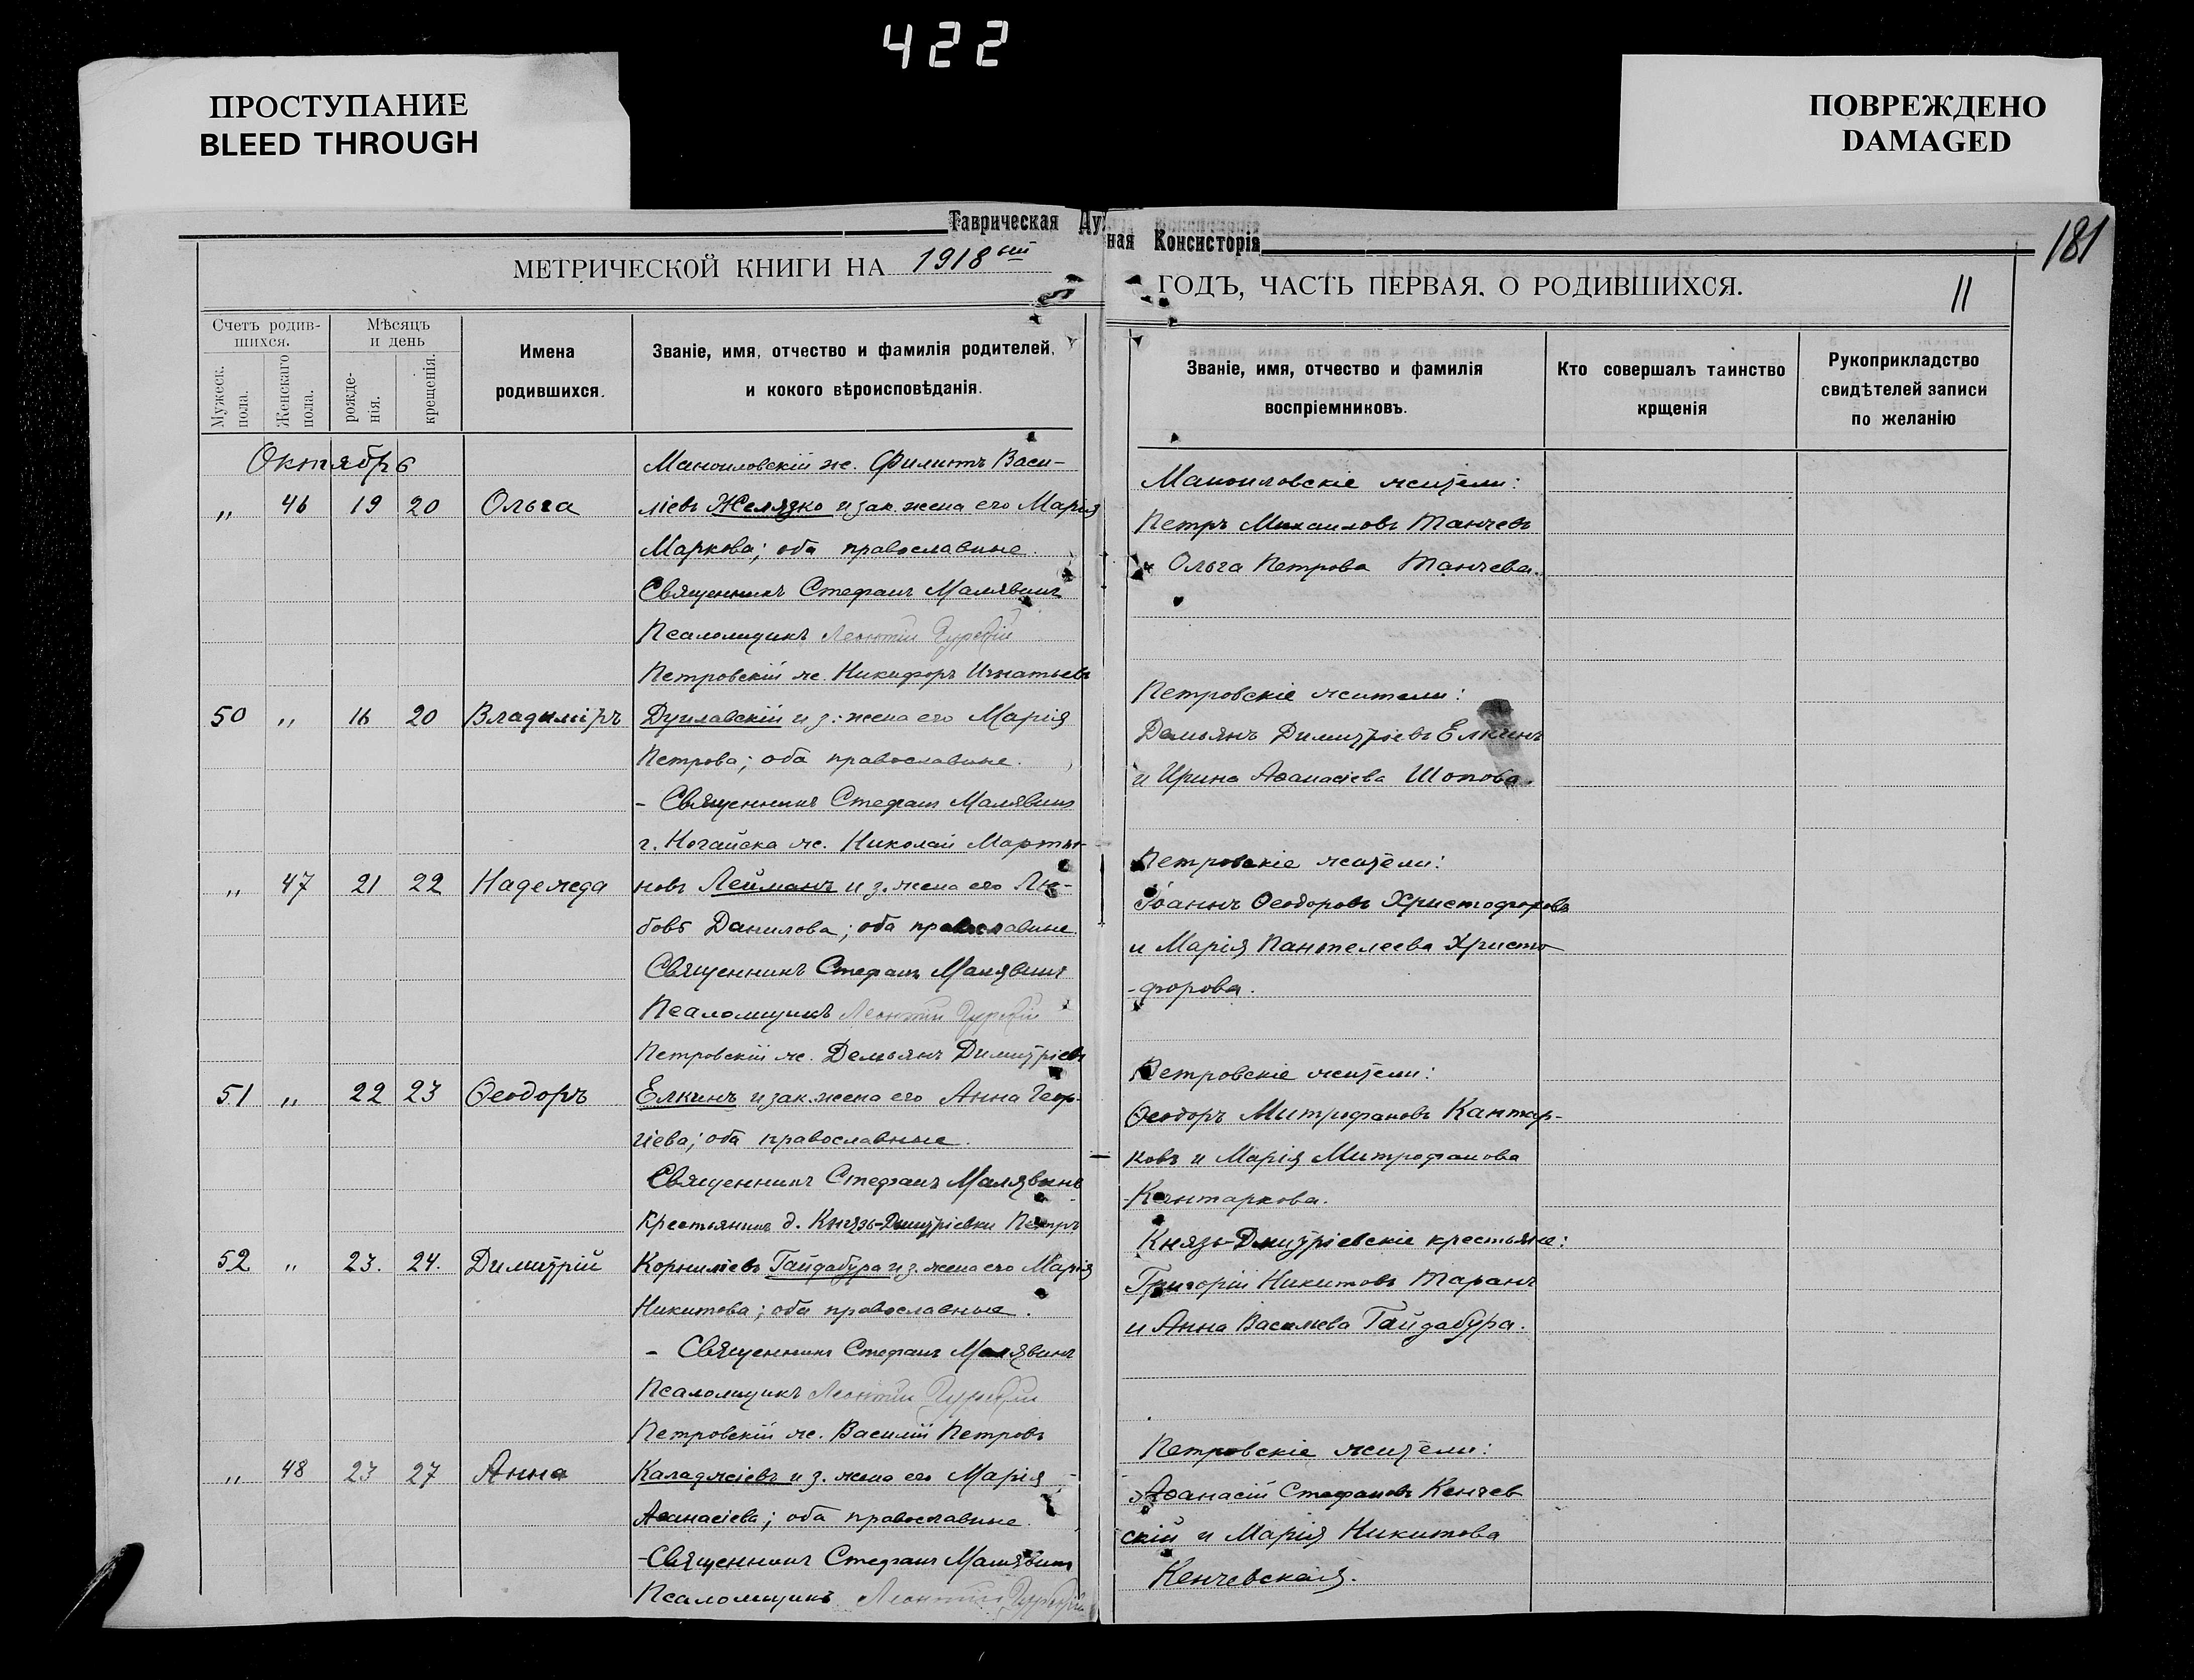 422
ПРОСТУПАНИЕ
BLEED THROUGH
ПОВРЕЖДЕНО
DAMAGED
Таврическая Духовная Консисторія
181
МЕТРИЧЕСКОЙ КНИГИ НА 1918ый
ГОДЪ, ЧАСТЬ ПЕРВАЯ, О РОДИВШИХСЯ.
11
Счетъ родив-
шихся.
Мужеск. пола.
Женскаго пола.
Мѣсяцъ
и день
рожде-
нія.
крещенія.
Имена
родившихся.
Званіе, имя, отчество и фамилія родителей,
и кокого вѣроисповѣданія.
Званіе, имя, отчество и фамилія
воспріемниковъ.
Кто совершалъ таинство
крщенія
Рукоприкладство
свидѣтелей записи
по желанію
Октябрь
Маноиловскій ж. Филиппъ Васи-
„ 46 19 20 Ольга ліевъ Желязко и зак. жена его Марія
Маркова; оба православные.
Священникъ Стефанъ Малявинъ
Псаломщикъ Леонтій
Маноиловскіе жители:
Петръ Михаиловъ Танчевъ
Ольга Петрова Танчева.
Петровскій ж. Никифоръ Игнатьевъ
50 „ 16 20 Владиміръ Дуилавскій и з: жена его Марія
Петрова; оба православные.
- Священникъ Стефанъ Малявинъ
Петровскіе жители:
Демьянъ Димитріевъ Елкинъ
и Ирина Аѳанасіева Шопова.
г. Ногайска ж. Николай Марты-
„ 47 21 22 Надежда новъ Лейманъ и з. жена его Лю-
бовь Данилова; оба православные.
Священникъ Стефанъ Малявинъ
Псаломщикъ Леонтій
Петровскіе жители:
Іоаннъ Ѳеодоровъ Христофоровъ
и Марія Пантелеева Христо-
-форова.
Петровскій ж. Демьянъ Димитріевъ
51 „ 22 23 Ѳеодоръ Елкинъ и зак. жена его Анна Геор-
гіева; оба православные.
Священникъ Стефанъ Малявинъ
Петровскіе жители:
Ѳеодоръ Митрофановъ Кантар-
ковъ и Марія Митрофанова
Кантаркова.
Крестьянинъ д. Князь-Димитріевки Петръ
52 „ 23. 24. Димитрій Корниліевъ Гайдабура и з. жена его Марія
Никитова; оба православные.
- Священникъ Стефанъ Малявинъ
Псаломщикъ Леонтій
Князь-Дмитріевскіе крестьяне:
Григорій Никитовъ Таранъ
и Анна Василіева Гайдабура.
Петровскій ж. Василій Петровъ
„ 48 23 27 Анна Каладжіевъ и з. жена его Марія
Аѳанасіева; оба православные.
-Священникъ Стефанъ Малявинъ
Псаломщикъ Леонтій
Петровскіе жители:
Аѳанасій Стефановъ Кенчев
скій и Марія Никитова
Кенчевская.